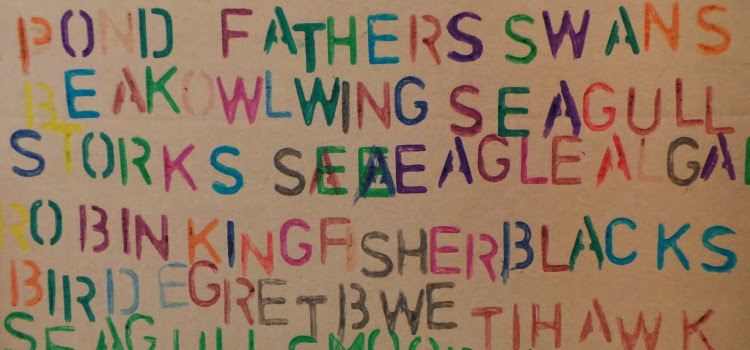 POND FATHERS SWANS
BEAK OWL WING SEAGULL
STORKS SEA EAGLE ALGAE
ROBIN KINGFISHER BLACKS
BIRD EGRET BWE TIHAWK
SEAGULL